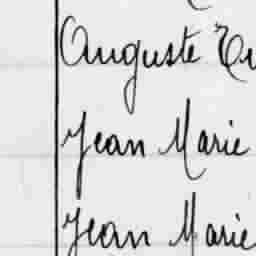 Auguste
Jean Marie
Jean Marie